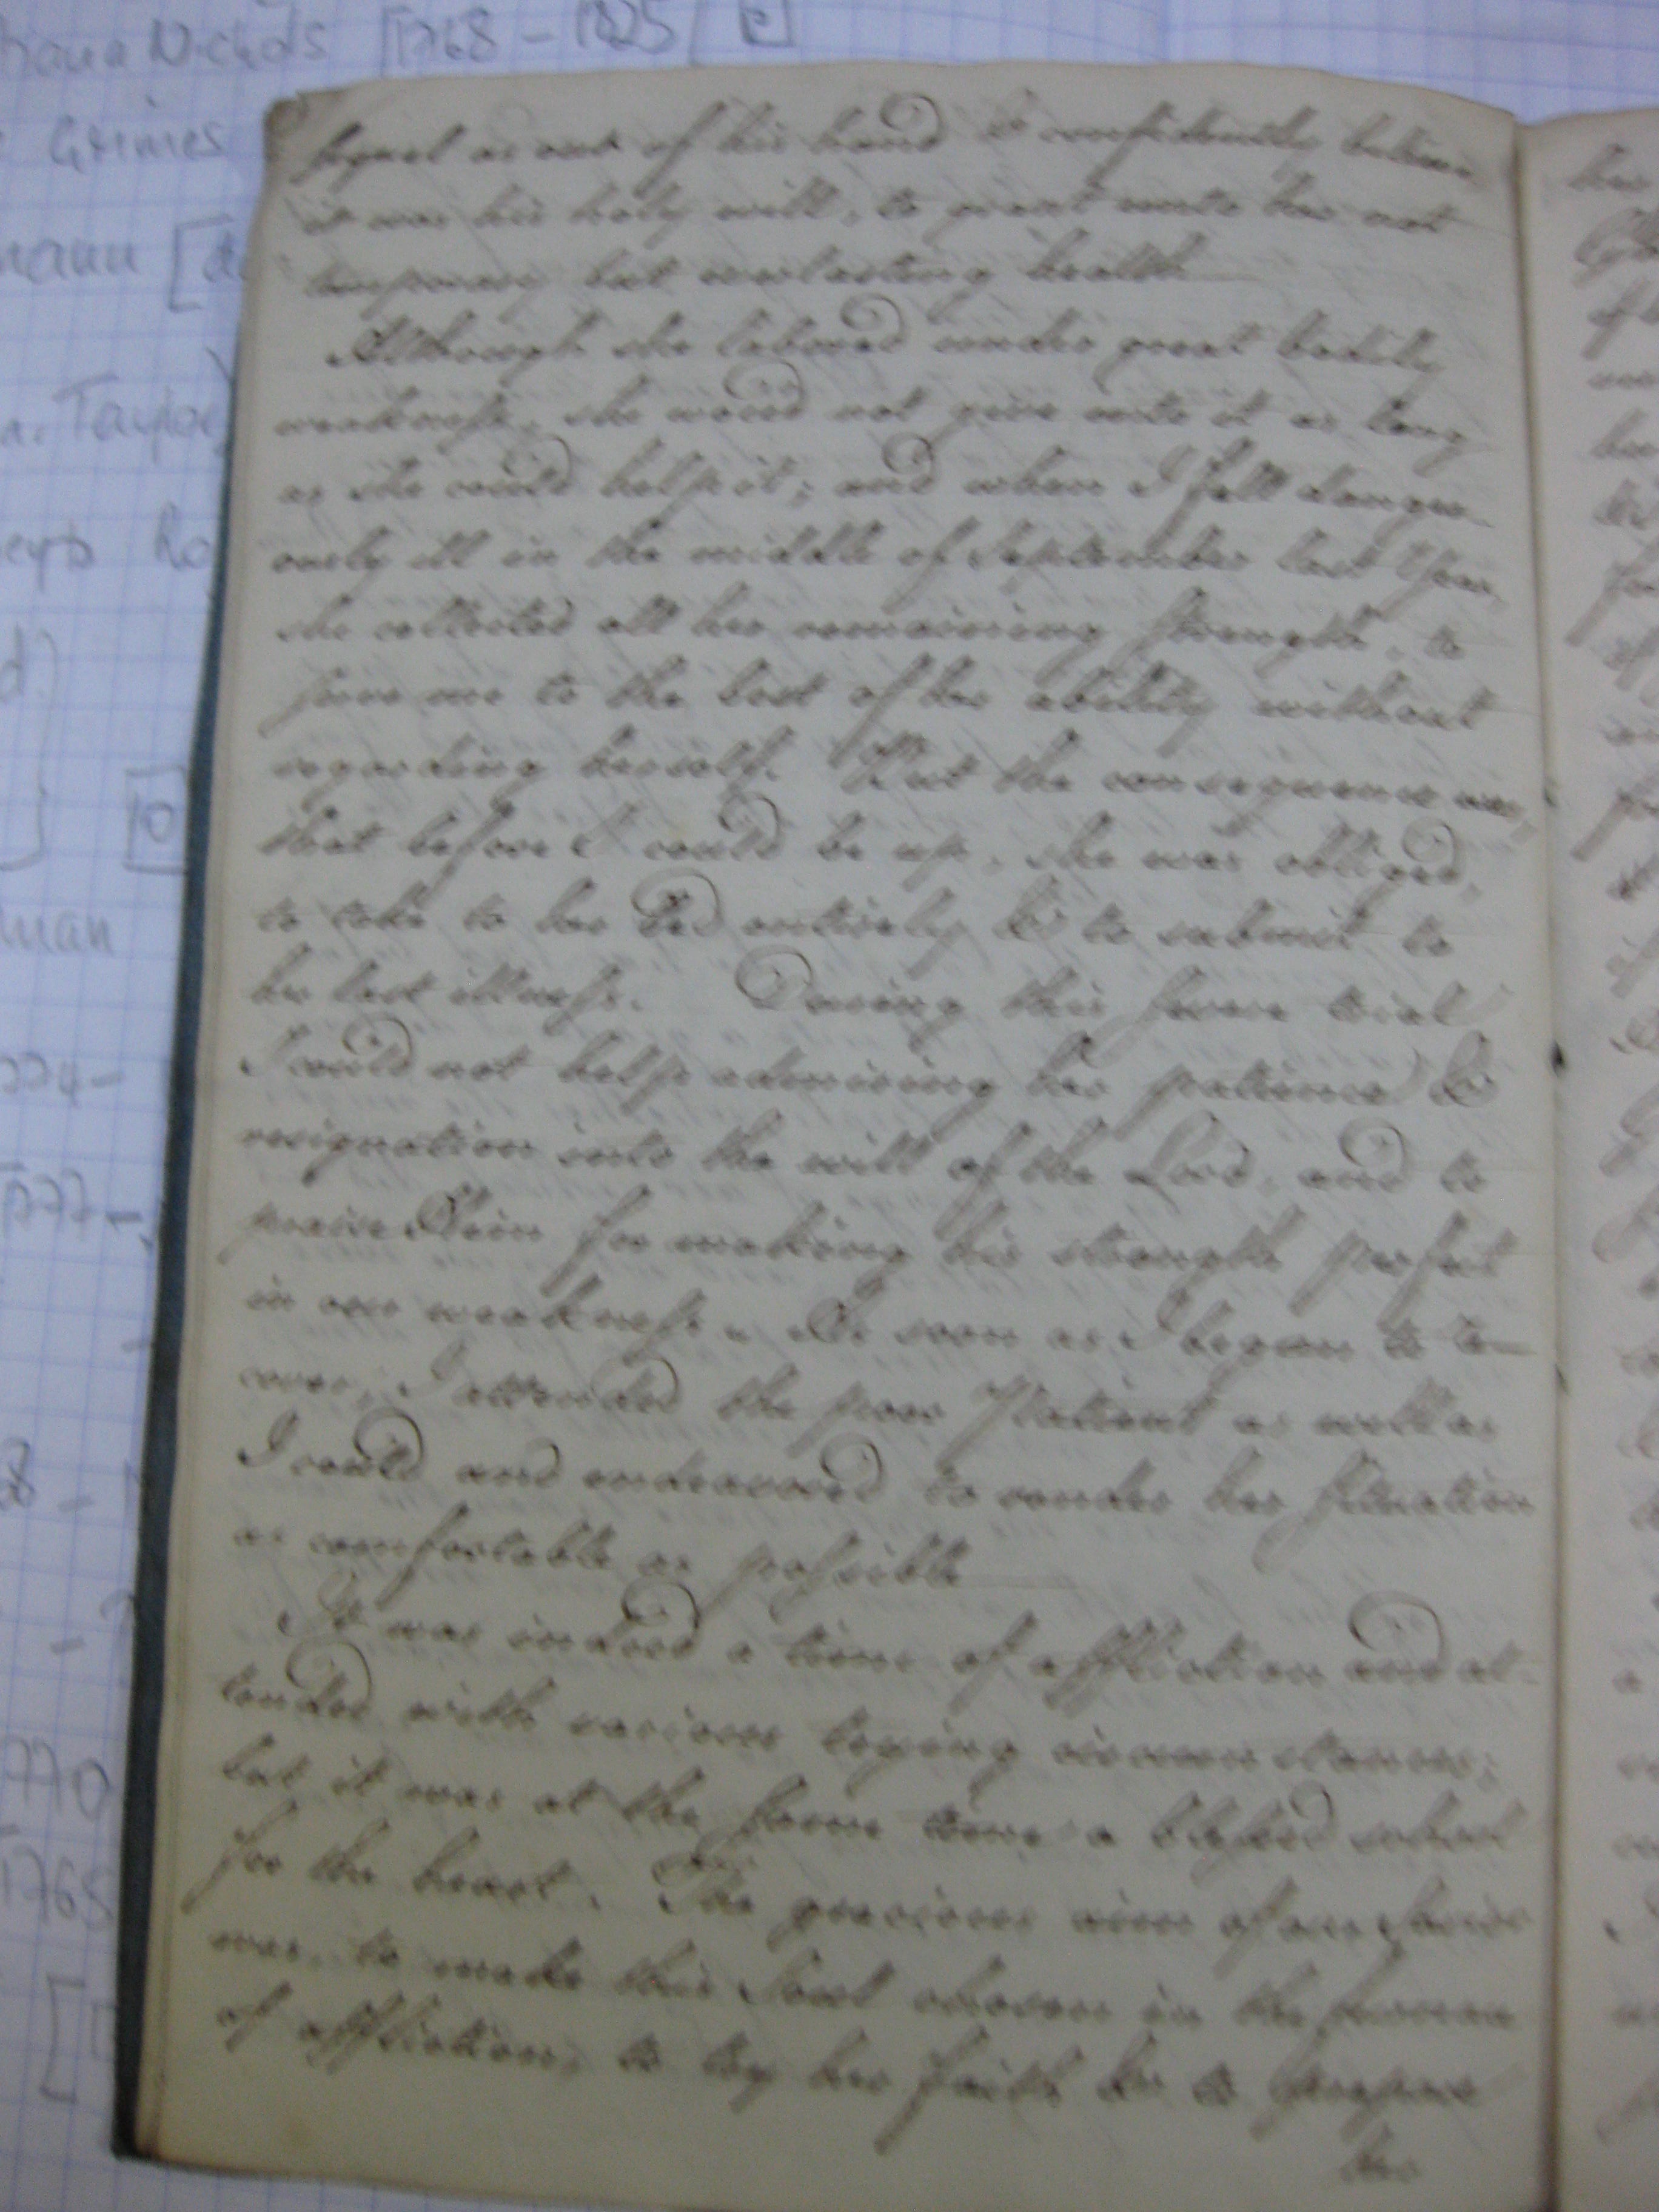 Nichols [1768 – 1825] [e]
Grimes
mann [d
a. Taylor)
Ro
d.)
10
man
774–
[1777–
8 –
770
[1768
sequel as out of his hand & confidently believe
it was his holy will, to grant unto her not
temporary but everlasting health
Although she labored under great bodily
weakness, she would not give unto it as long
as she could help it; and when I fell danger-
ously ill in the middle of September last Year,
she collected all her remaining strength, to
serve me to the best of her ability without
regarding herself. But the consequence was,
that before I could be up, she was obliged,
to take to her Bed entirely & to submit to
her last illness. During this severe trial
I could not help admiring her patience &
resignation into the will of the Lord, and to
praise Him for making his strength perfect
in our weakness. As soon as I began to re-
cover, I attended the poor Patient as well as
I could and endeavored to render her situation
as comfortable as possible
It was indeed a time of affliction and at-
tended with various trying circumstances;
but it was at the same time a blessed school
for the heart. The gracious aim of our Savior
was, to make this Soul chosen in the furnace
of affliction, to try her faith & to prepare
her